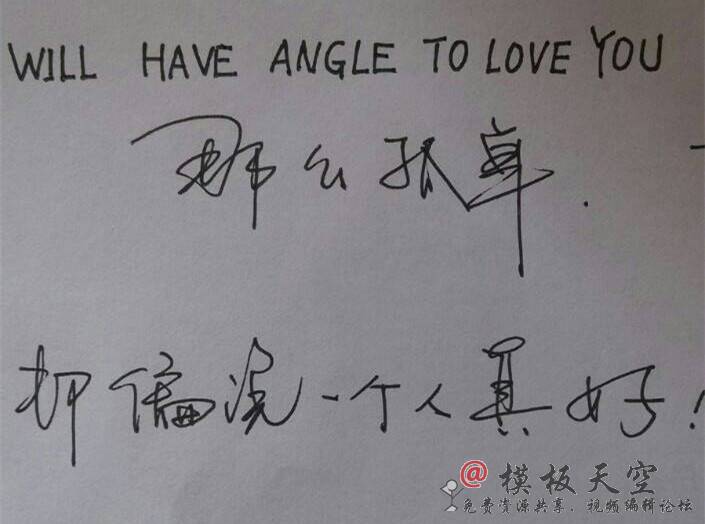 WILL HAVE ANGLE TO LOVE YOU
那么孤单.
却偏说一个人真好!
@模板天空
免费资源共享、视频编辑论坛